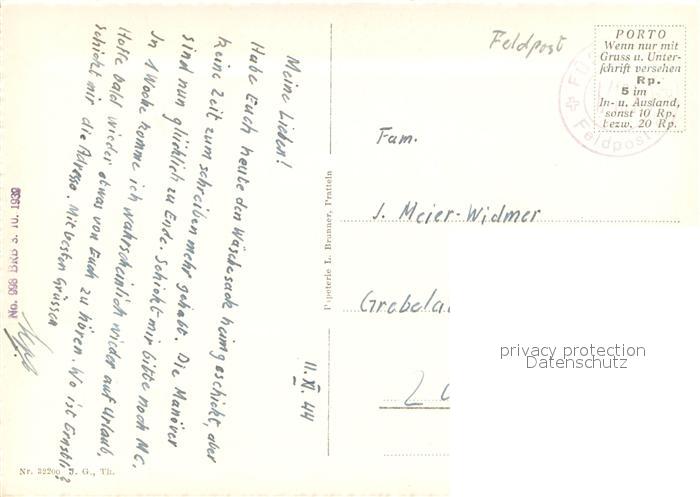 Meine Lieben!
Habe Euch heute den Wäschesack heimgeschickt, aber
keine Zeit zum schreiben mehr gehabt. Die Manöver
sind nun glücklich zu Ende. Schickt mir bitte noch MC.
In 1 Woche komme ich wahrscheinlich wieder auf Urlaub.
Hoffe bald wieder etwas von Euch zu hören. Wo ist Ernstli?
schickt mir die Adresse. Mit besten Grüssen
11. XI. 44
No. 998 BRB 3. 10. 1939
Nr. 32200 J. G., Th.
Papeterie L. Brunner, Pratteln
Feldpost
PORTO
Wenn nur mit
Gruss u. Unter-
schrift versehen
Rp.
5 im
In- u. Ausland,
sonst 10 Rp.
bezw. 20 Rp.
Feldpost
Fam.
J. Meier-Widmer
privacy protection
Datenschutz